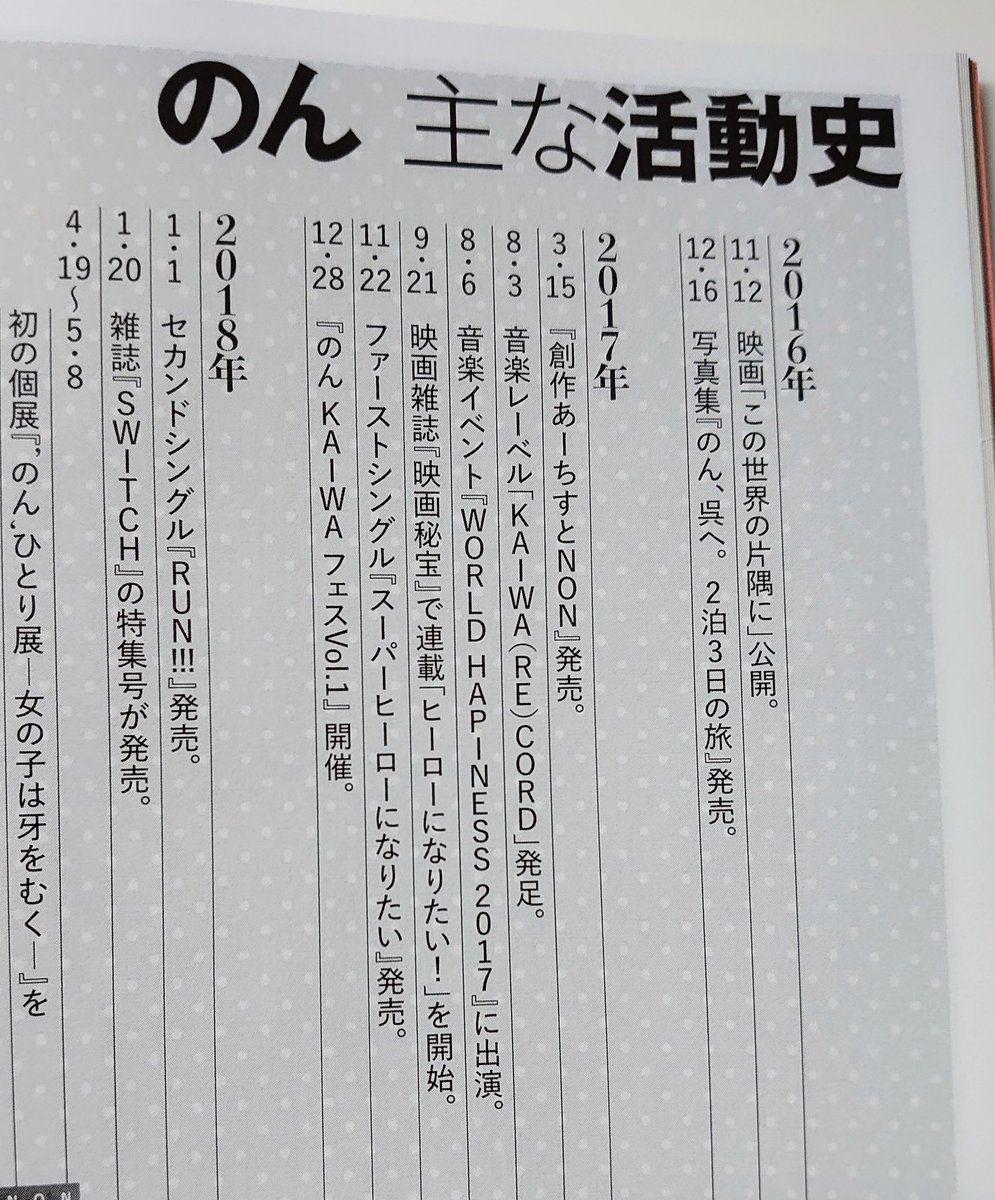 のん 主な活動史
2016年
11・12 映画「この世界の片隅に」公開。
12・16 写真集『のん、呉へ。 2泊3日の旅』発売。
2017年
3・15 『創作あーちすとNON』発売。
8・3 音楽レーベル「KAIWA(RE)CORD」発足。
8・6 音楽イベント『WORLD HAPINESS 2017』に出演。
9・21 映画雑誌『映画秘宝』で連載「ヒーローになりたい!」を開始。
11・22 ファーストシングル『スーパーヒーローになりたい』発売。
12・28 『のん KAIWA フェスVol.1』開催。
2018年
1・1 セカンドシングル『RUN!!!』発売。
1・20 雑誌『SWITCH』の特集号が発売。
4・19〜5・8
初の個展『‘のん’ひとり展―女の子は牙をむく―』を
NON